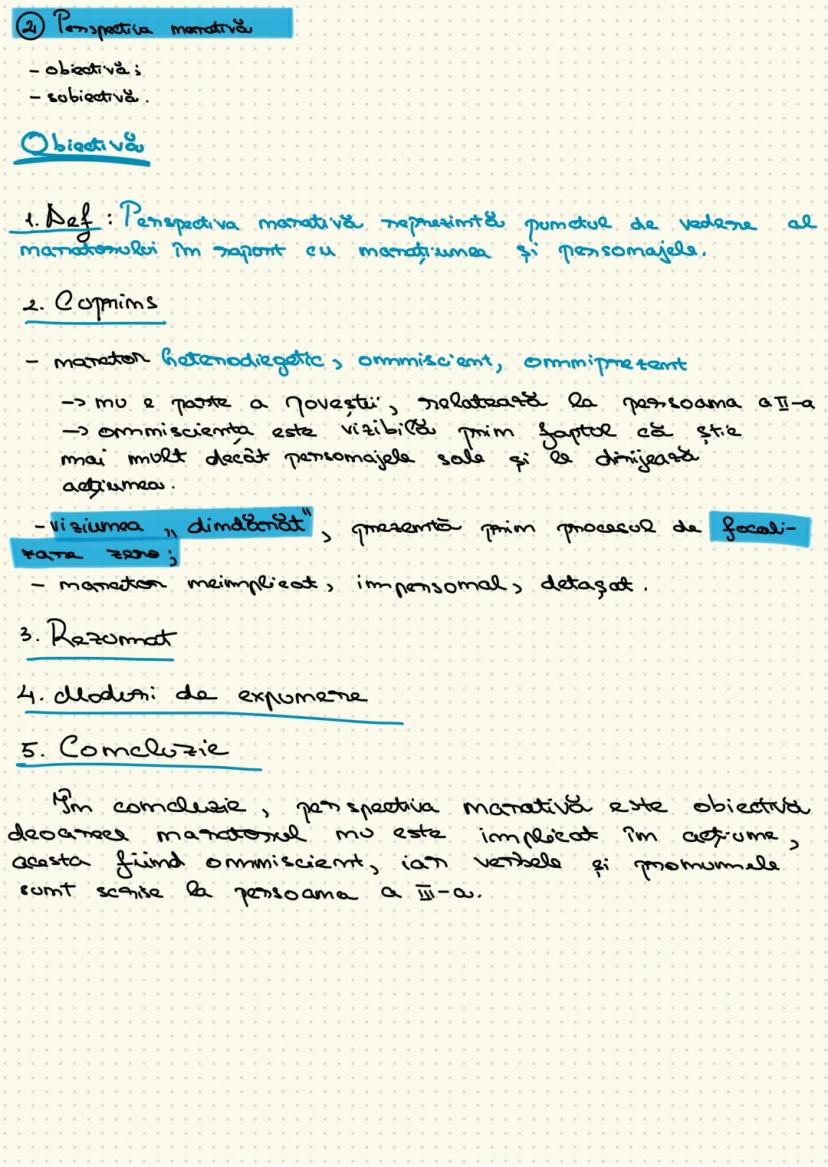 ② Perspectiva narativă
- obiectivă;
- subiectivă.
Obiectivă
1. Def: Perspectiva narativă reprezintă punctul de vedere al
naratorului în raport cu narațiunea și personajele.
2. Cuprins
- narator heterodiegetic, omniscient, omniprezent
-> nu e parte a poveștii, relatează la persoana a II-a
-> omnisciența este vizibilă prin faptul că știe
mai mult decât personajele sale și le dirijează
acțiunea.
- viziunea „dindărăt", prezentă prin procesul de focali-
zare zero;
- narator neimplicat, impersonal, detașat.
3. Rezumat
4. Moduri de expunere
5. Concluzie
În concluzie, perspectiva narativă este obiectivă
deoarece naratorul nu este implicat în acțiune,
acesta fiind omniscient, iar verbele și pronumele
sunt scrise la persoana a III-a.